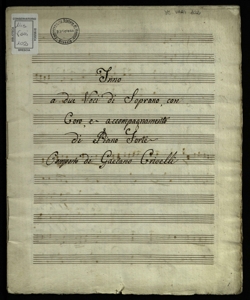 Inno
a due Voci di Soprano con
Coro, e accompagnamento
di Piano Forte
Composto da Gaetano Crivelli